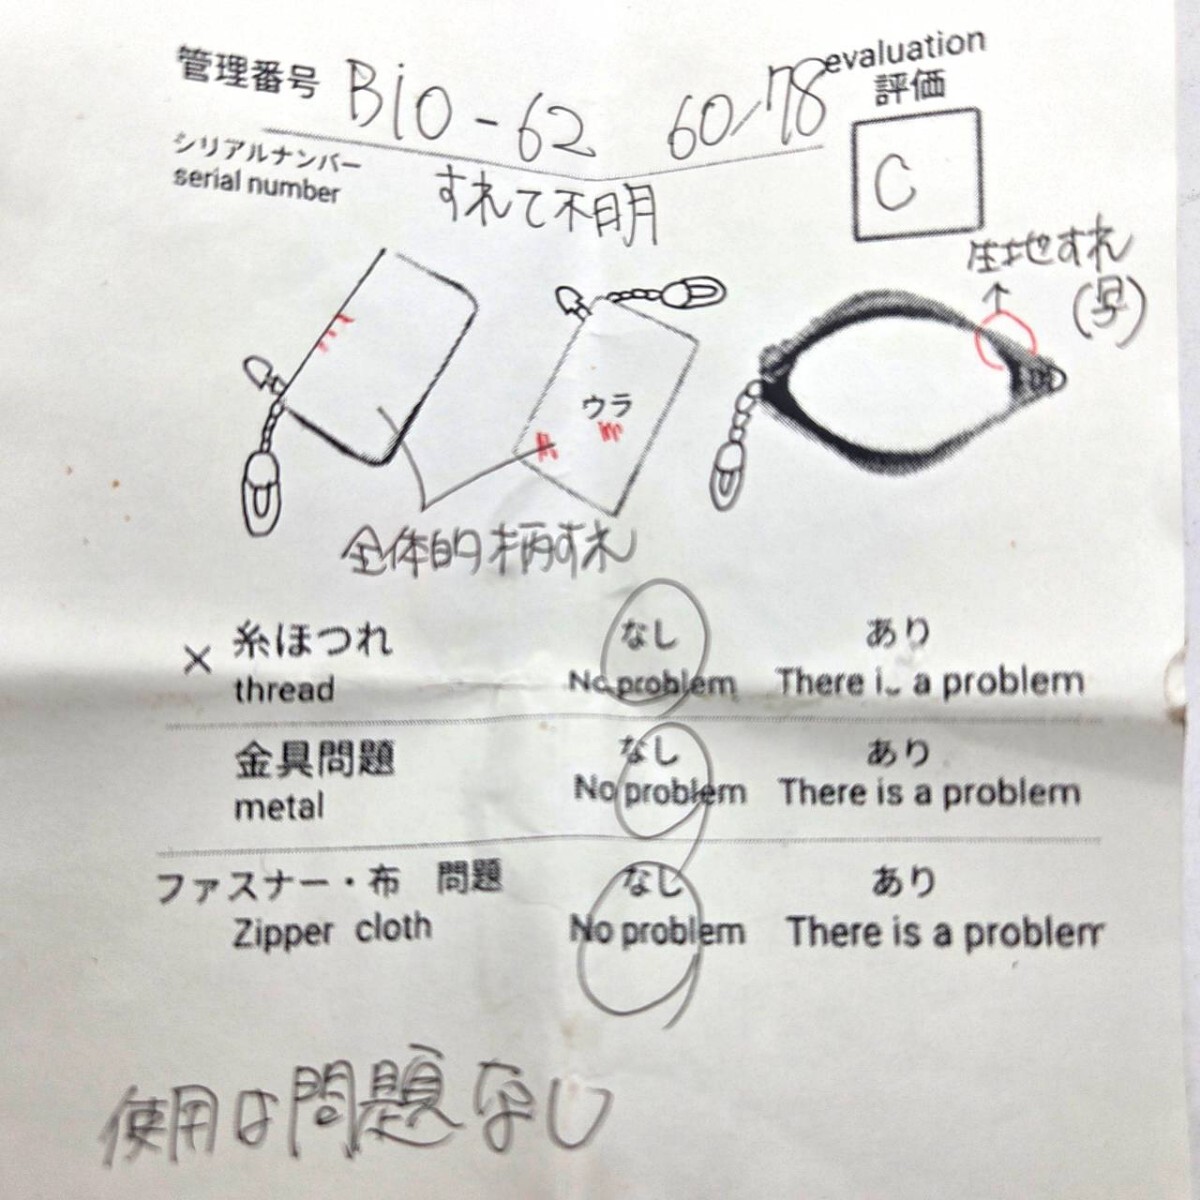 管理番号 B10-62 60/78
evaluation
評価
C
シリアルナンバー
serial number
すれて不明
生地すれ
(写)
ウラ
全体的柄すれ
× 糸ほつれ なし あり
thread No problem There is a problem
金具問題 なし あり
metal No problem There is a problem
ファスナー・布 問題 なし あり
Zipper cloth No problem There is a problem
使用は問題なし